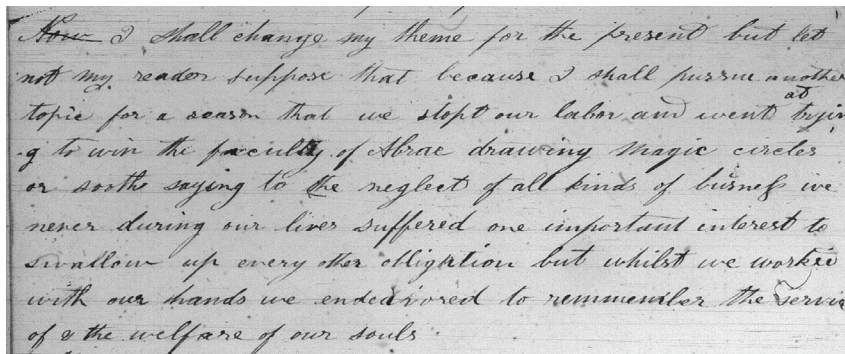 Now I shall change my theme for the present but let
not my reader suppose that because I shall pursue another
topic for a season that we stopt our labor and went at tryin
g to win the faculty of Abrac drawing Magic circles
or sooth saying to the neglect of all kinds of buisness we
never during our lives suffered one important interest to
swallow up every other obligation but whilst we worked
with our hands we endeavored to remmember the service
of & the welfare of our souls.